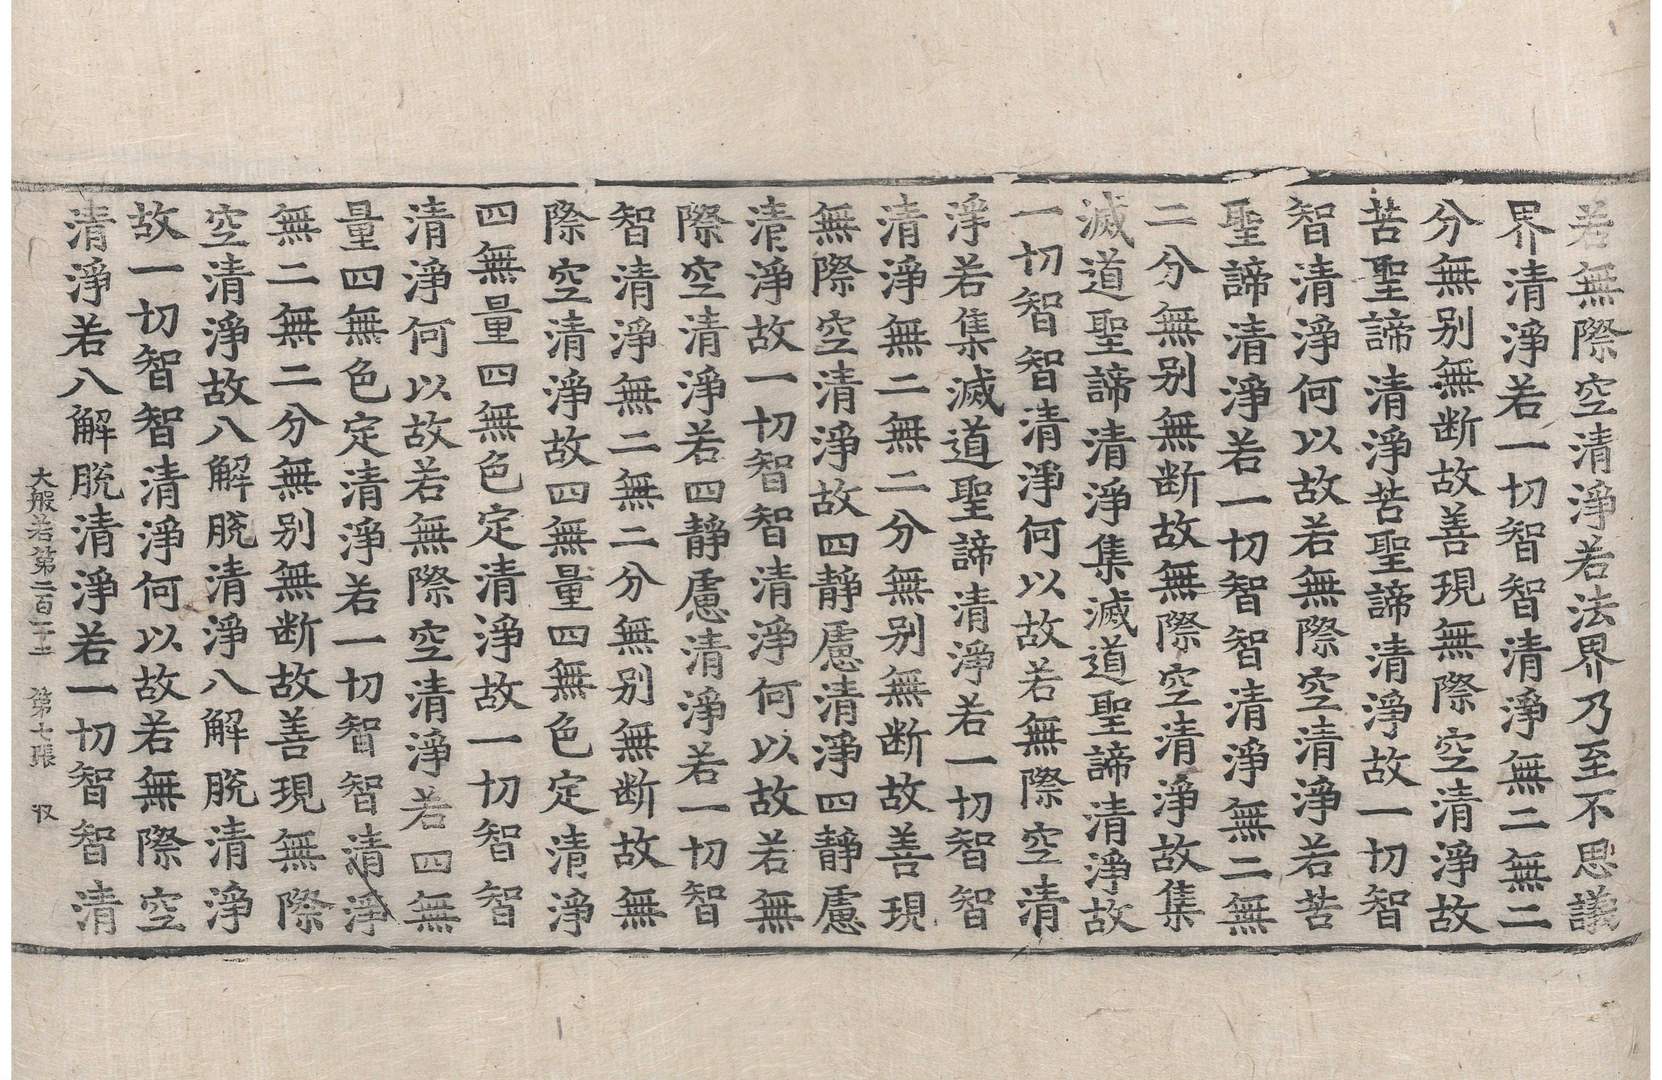 若無際空清淨若法界乃至不思議
界清淨若一切智智清淨無二無二
分無别無断故善現無際空清淨故
苦聖諦清淨苦聖諦清淨故一切智
智清淨何以故若無際空清淨若苦
聖諦清淨若一切智智清淨無二無
二分無别無断故無際空清淨故集
滅道聖諦清淨集滅道聖諦清淨故
一切智智清淨何以故若無際空清
淨若集滅道聖諦清淨若一切智智
清淨無二無二分無别無断故善現
無際空清淨故四靜慮清淨四靜慮
清淨故一切智智清淨何以故若無
際空清淨若四靜慮清淨若一切智
智清淨無二無二分無别無断故無
際空清淨故四無量四無色定清淨
四無量四無色定清淨故一切智智
清淨何以故若無際空清淨若四無
量四無色定清淨若一切智智清淨
無二無二分無别無断故善現無際
空清淨故八解脫清淨八解脫清淨
故一切智智清淨何以故若無際空
清淨若八解脫清淨若一切智智清
大般若第二百二十二 第七張 収